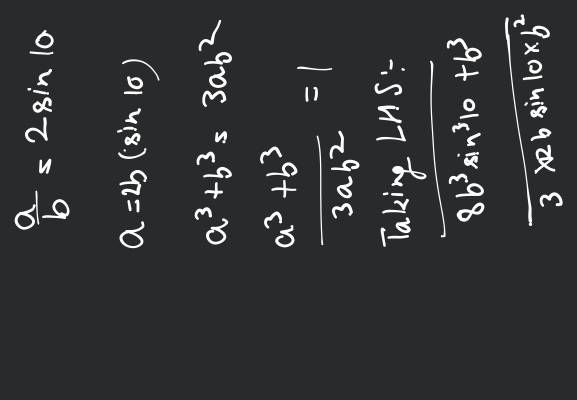 a/b = 2 sin 10
a = 2b (sin 10)
a³ + b³ = 3ab²
a³ + b³ / 3ab² = 1
Taking LHS:-
8b³ sin³10 + b³
3 × 2b sin 10 × b²